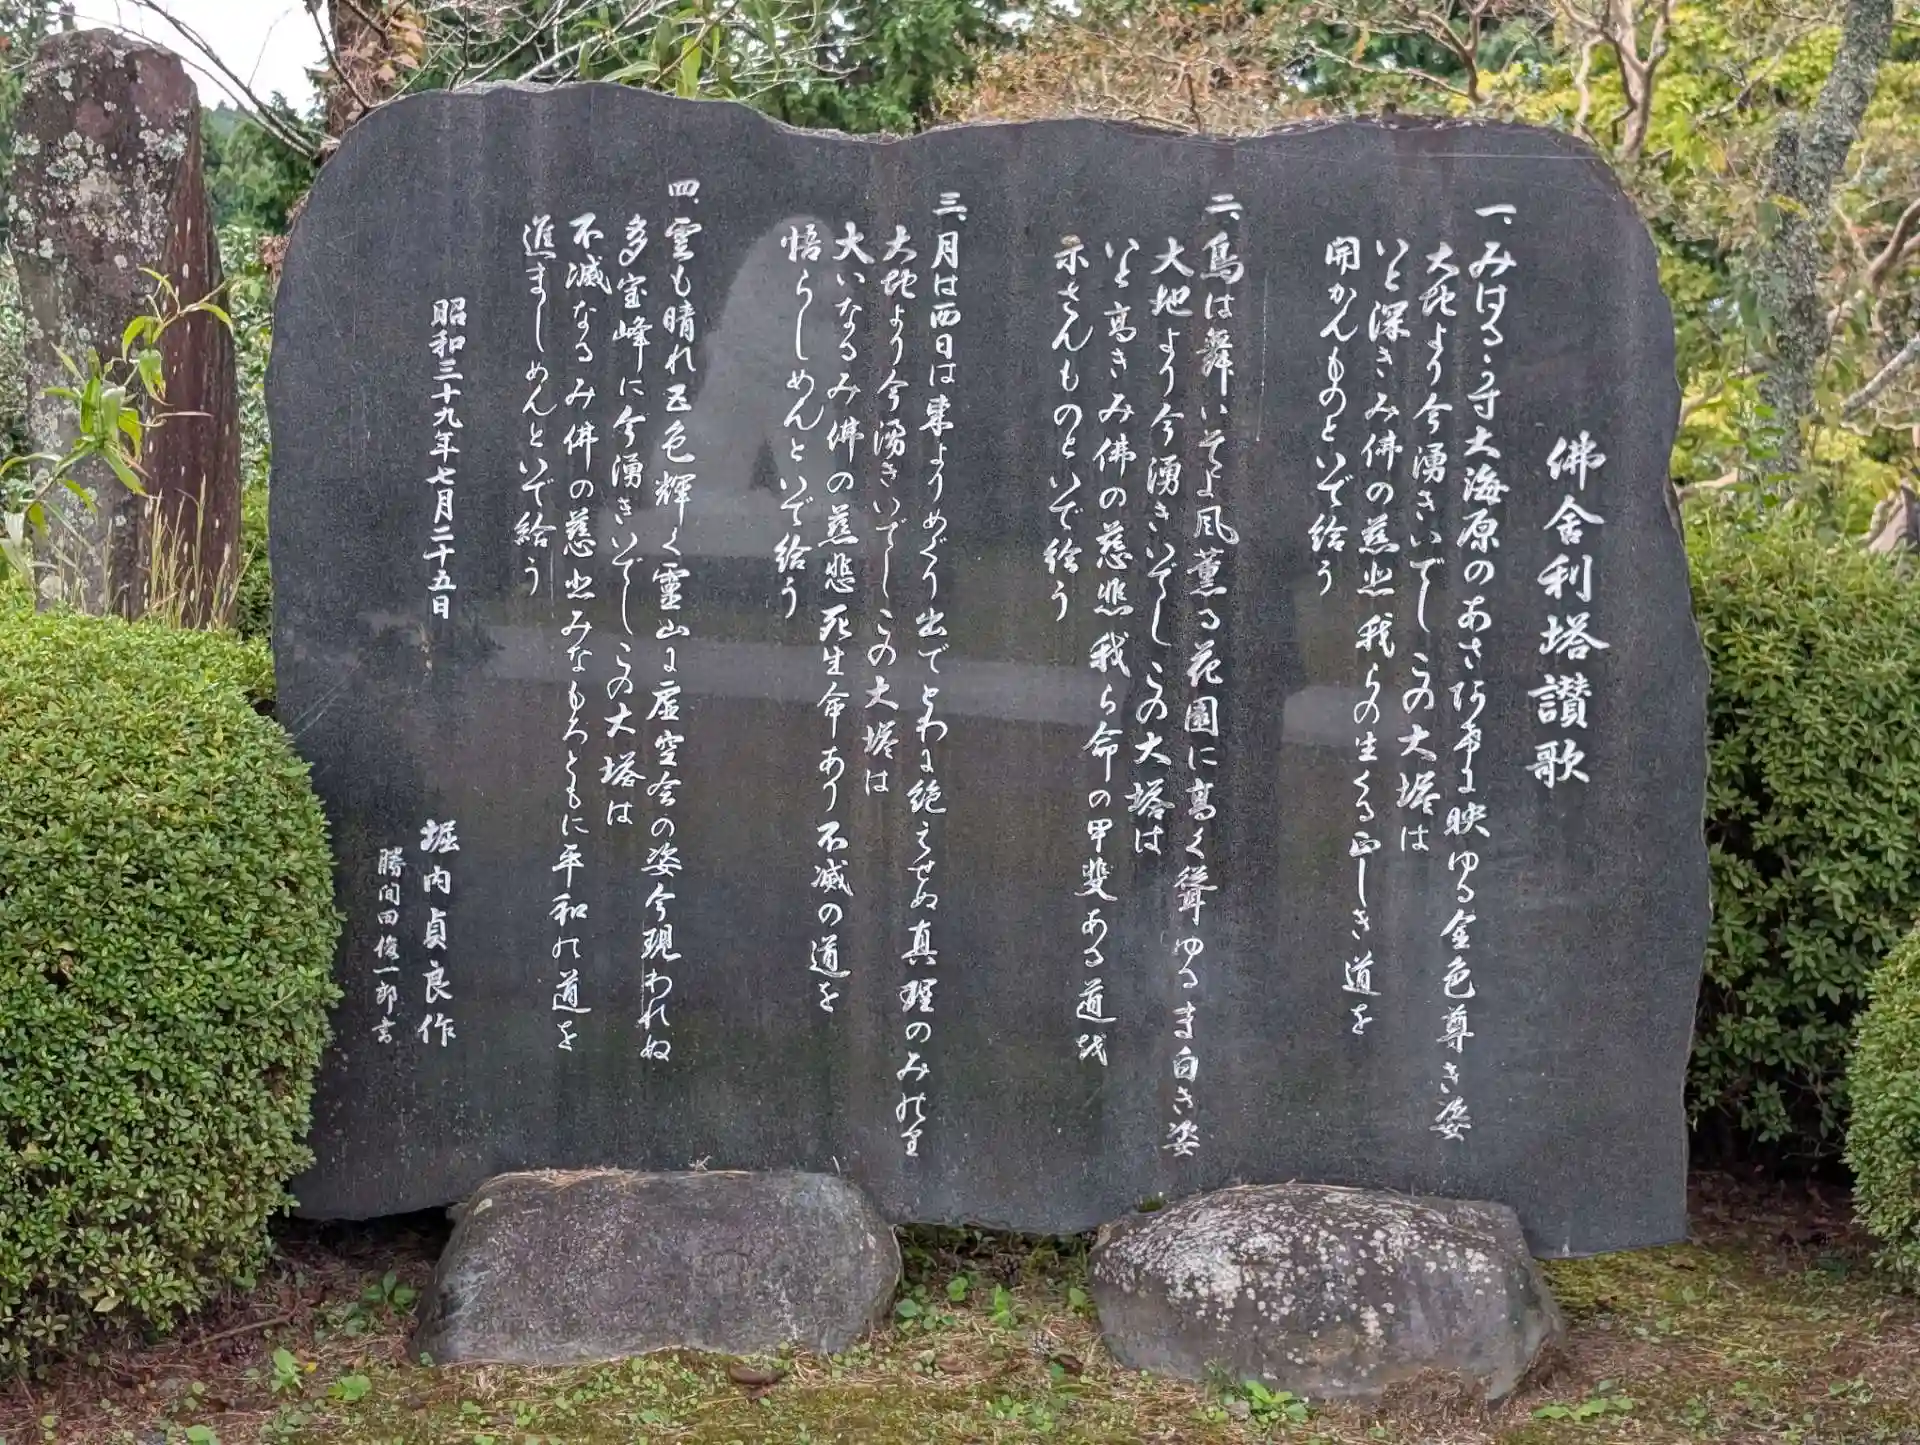 佛舎利塔讃歌
一、みはるゝ寸大海原のあさ日に映ゆる金色尊き姿
大地より今湧きいでしこの大塔は
いと深きみ佛の慈悲我らの生くる正しき道を
開かんものといで給う
二、鳥は舞いそよ風薫る花園に高く聳ゆるま白き姿
大地より今湧きいでしこの大塔は
いと高きみ佛の慈悲我ら命の甲斐ある道を
示さんものといで給う
三、月は西日は東よりめぐり出でとわに絶えせぬ真理のみのり
大地より今湧きいでしこの大塔は
大いなるみ佛の慈悲死生命あり不滅の道を
悟らしめんといで給う
四、雲も晴れ五色輝く靈山に虚空会の姿今現われぬ
多宝峰に今湧きいでしこの大塔は
不滅なるみ佛の慈悲みなもろともに平和の道を
進ましめんといで給う
昭和三十九年七月二十五日
堀内貞良作
勝間田俊一郎書